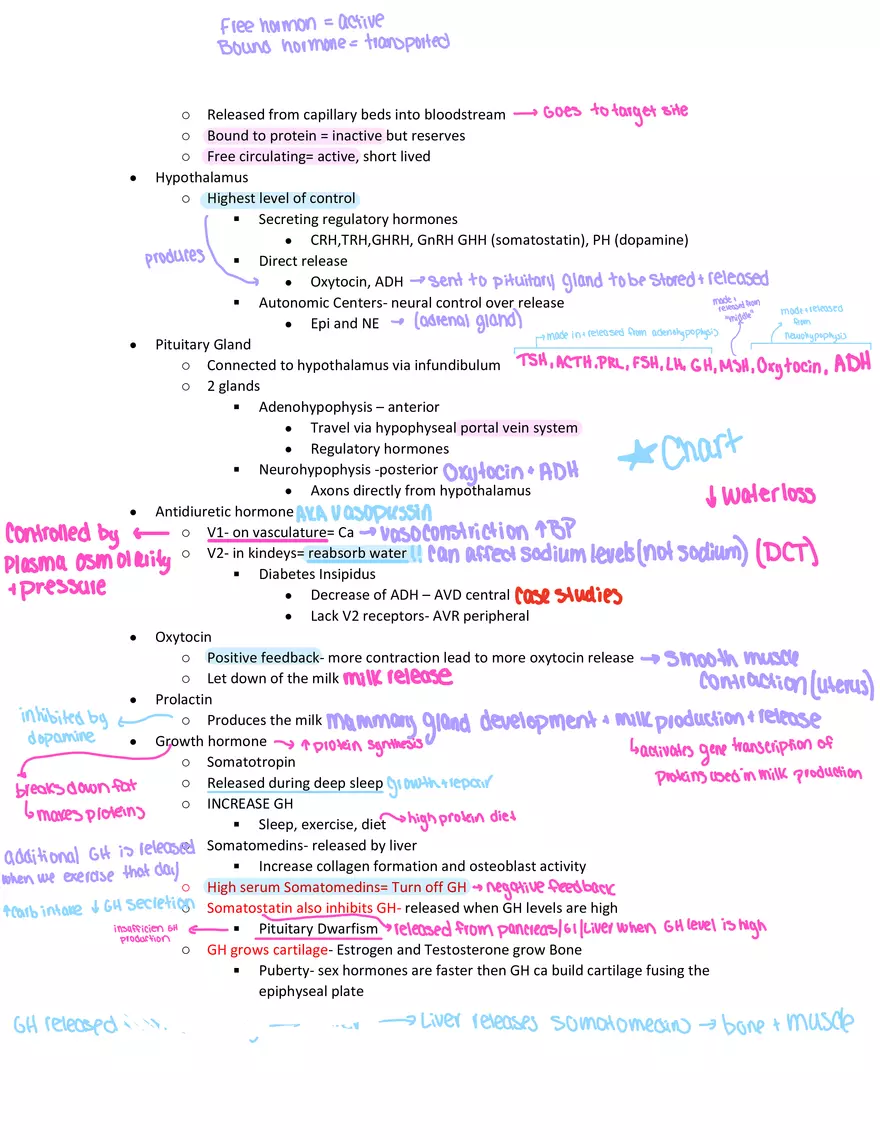 Free hormon = active
Bound hormone = transported
○ Released from capillary beds into bloodstream → Goes to target site
○ Bound to protein = inactive but reserves
○ Free circulating= active, short lived
● Hypothalamus
○ Highest level of control
▪ Secreting regulatory hormones
● CRH,TRH,GHRH, GnRH GHH (somatostatin), PH (dopamine)
produces
▪ Direct release
● Oxytocin, ADH → sent to pituitary gland to be stored + released
▪ Autonomic Centers- neural control over release
● Epi and NE → (adrenal gland)
made + released from "middle"
made + released from neurohypophysis
→ made in + released from adenohypophysis
● Pituitary Gland
○ Connected to hypothalamus via infundibulum
TSH, ACTH, PRL, FSH, LH, GH, MSH, Oxytocin, ADH
○ 2 glands
▪ Adenohypophysis – anterior
● Travel via hypophyseal portal vein system
● Regulatory hormones
★ Chart
▪ Neurohypophysis -posterior Oxytocin + ADH
● Axons directly from hypothalamus
↓ Water loss
● Antidiuretic hormone AKA Vasopussin
Controlled by plasma osmolarity + pressure
← ○ V1- on vasculature= Ca → vasoconstriction ↑BP
○ V2- in kindeys= reabsorb water !! Can affect sodium levels (not sodium) (DCT)
▪ Diabetes Insipidus
● Decrease of ADH – AVD central Case studies
● Lack V2 receptors- AVR peripheral
● Oxytocin
○ Positive feedback- more contraction lead to more oxytocin release → smooth muscle contraction (uterus)
○ Let down of the milk milk release
● Prolactin
inhibited by dopamine
○ Produces the milk mammary gland development + milk production + release
↳ activates gene transcription of proteins used in milk production
● Growth hormone → ↑ protein synthesis
breaks down fat
↳ makes proteins
○ Somatotropin
○ Released during deep sleep growth + repair
○ INCREASE GH
▪ Sleep, exercise, diet → high protein diet
additional GH is released when we exercise that day
○ Somatomedins- released by liver
▪ Increase collagen formation and osteoblast activity
○ High serum Somatomedins= Turn off GH → negative feedback
↑carb intake ↓ GH secretion
○ Somatostatin also inhibits GH- released when GH levels are high
insufficien GH production ←
▪ Pituitary Dwarfism
→ released from pancreas/GI/Liver when GH level is high
○ GH grows cartilage- Estrogen and Testosterone grow Bone
▪ Puberty- sex hormones are faster then GH ca build cartilage fusing the
epiphyseal plate
GH released → Liver releases somatomedins → bone + muscle